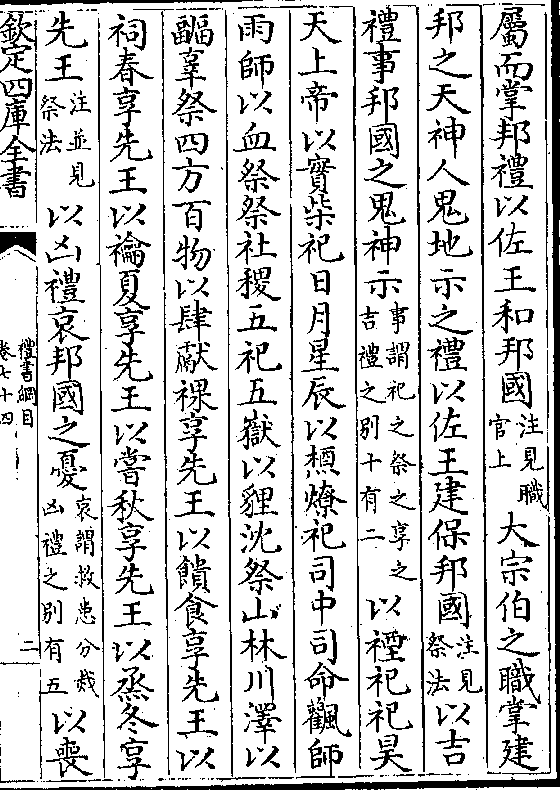 屬而掌邦禮以佐王和邦國注見職官上大宗伯之職掌建
邦之天神人鬼地示之禮以佐王建保邦國注見祭法以吉
禮事邦國之鬼神示事謂祀之祭之享之吉禮之别十有二以禋祀祀昊
天上帝以實柴祀日月星辰以槱燎祀司中司命飌師
雨師以血祭祭社稷五祀五嶽以貍沈祭山林川澤以
疈辜祭四方百物以肆獻祼享先王以饋食享先王以
祠春享先王以禴夏享先王以嘗秋享先王以烝冬享
先王注並見祭法以凶禮哀邦國之憂哀謂救患分烖凶禮之别有五以喪
欽定四庫全書
禮書綱目
卷七十四
二